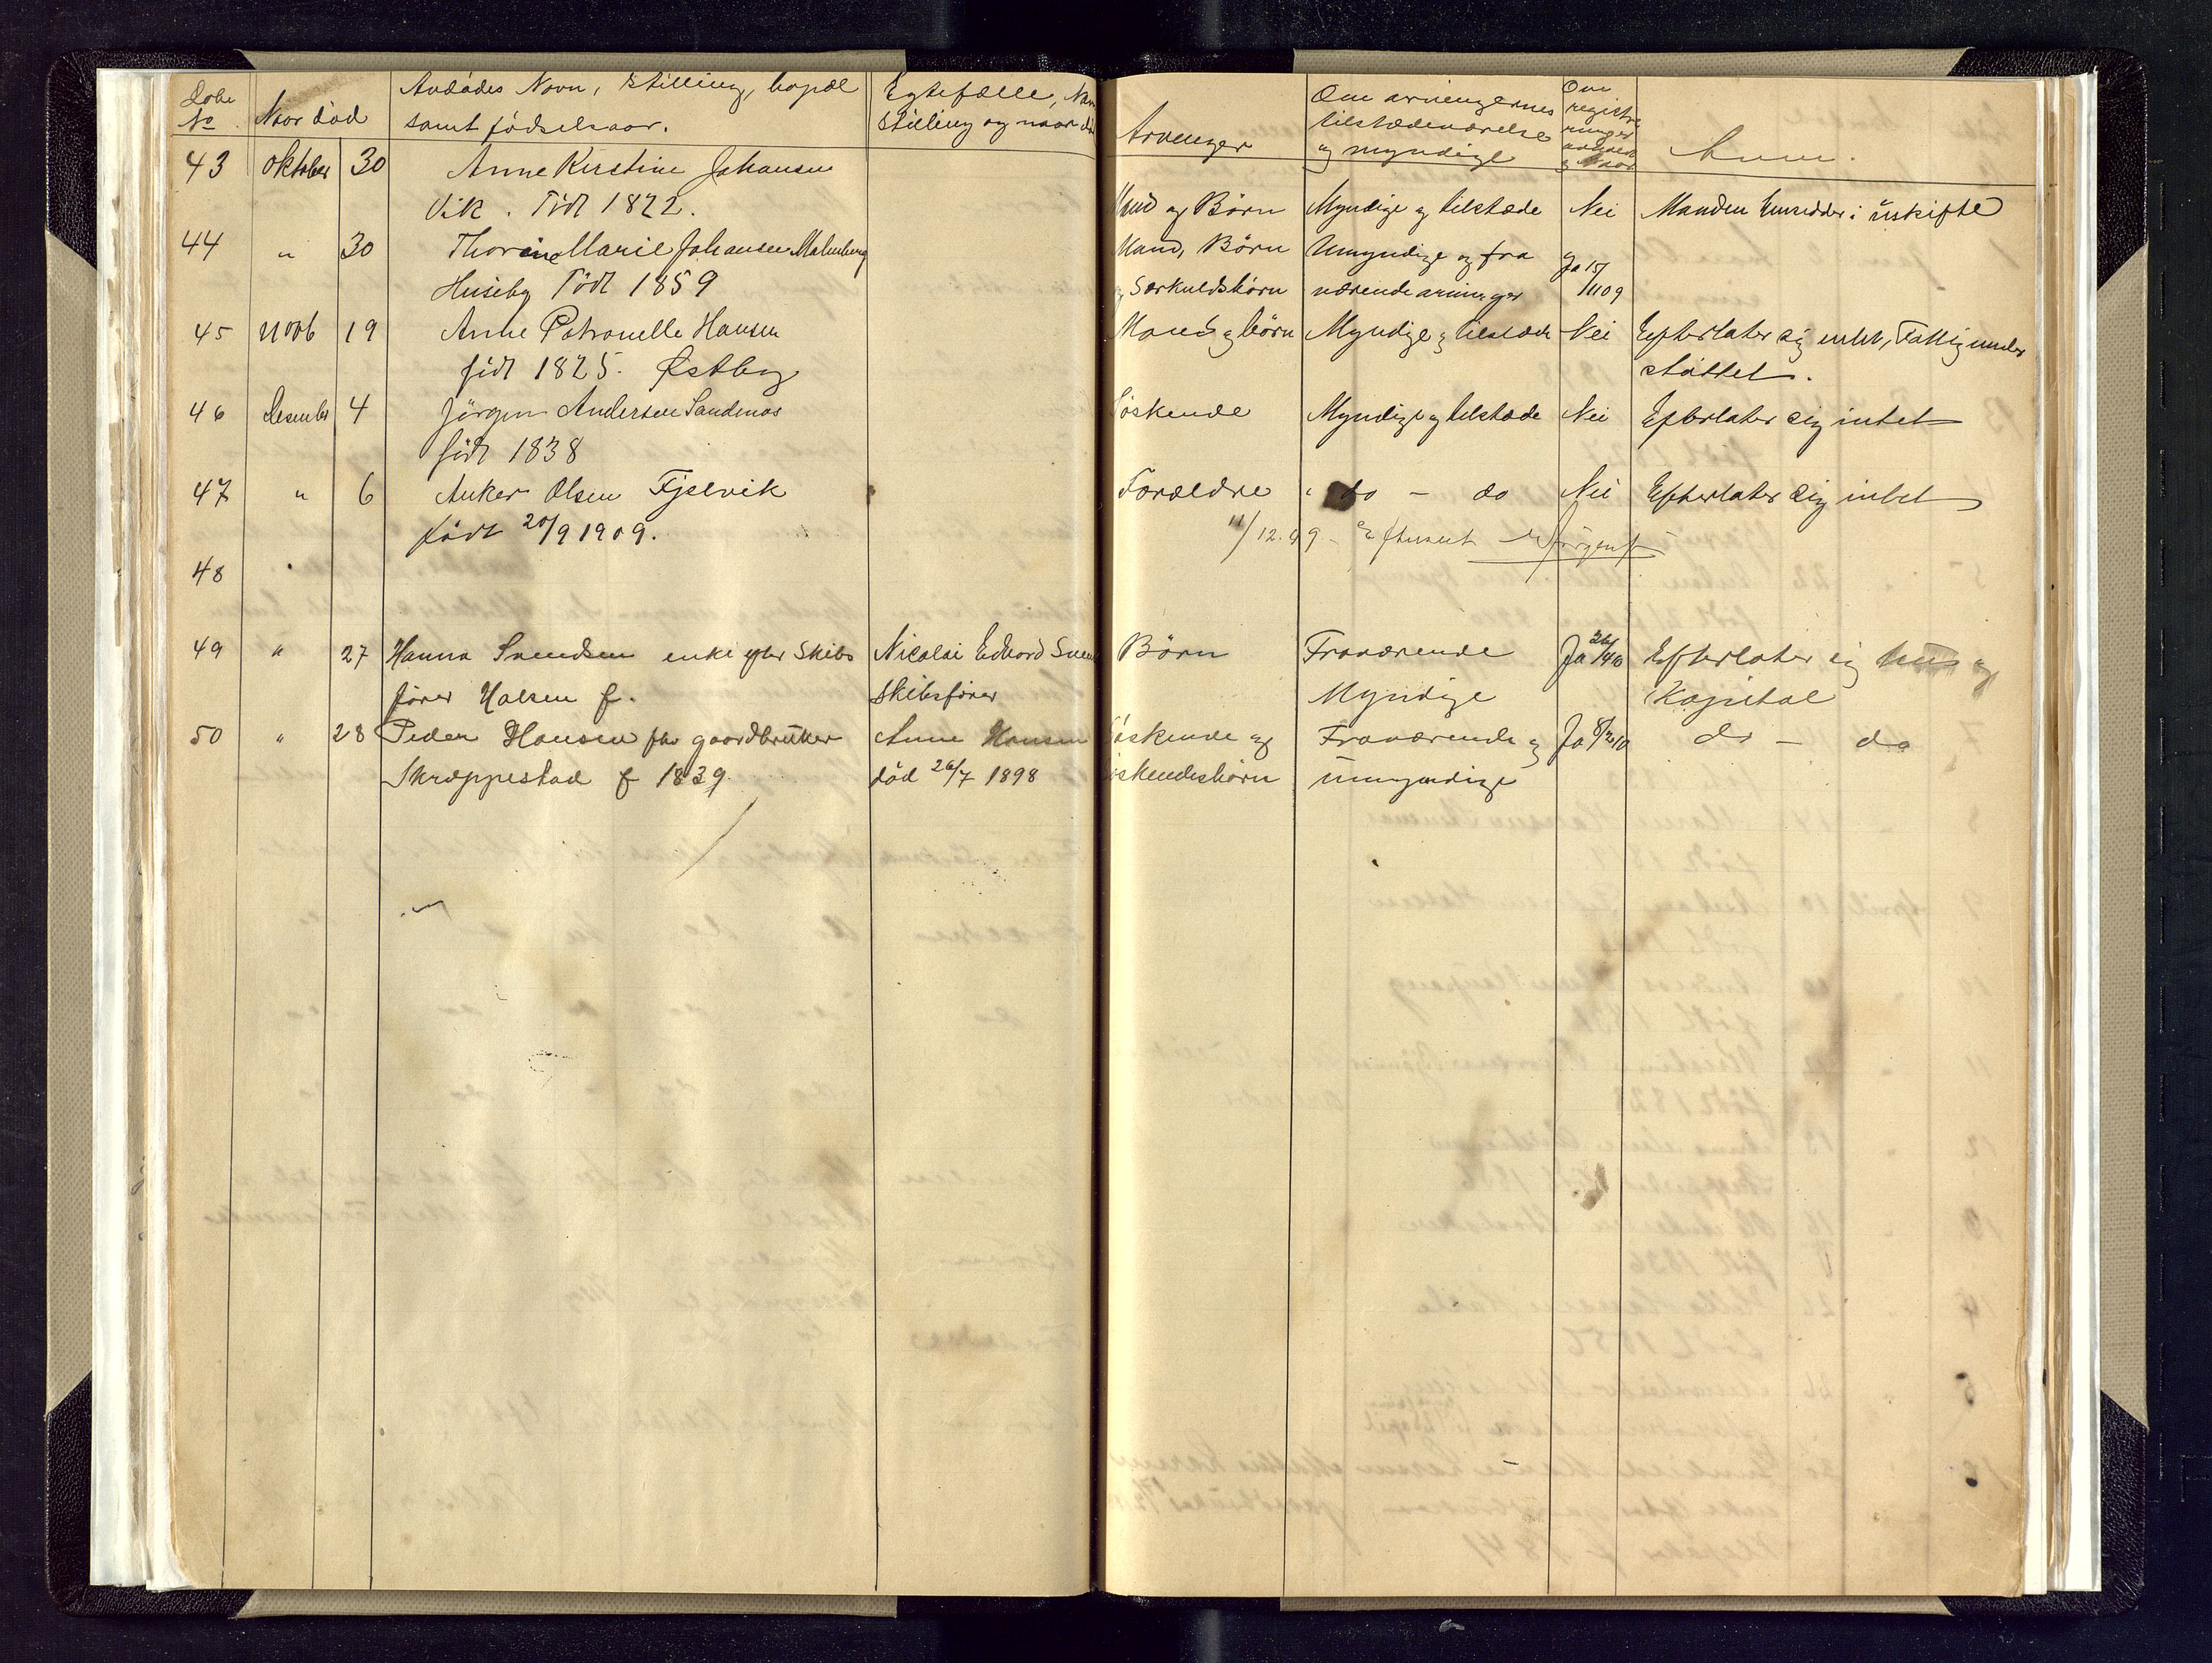 Løbe No
Naar død
Avdødes Navn, Stilling, bopæl
samt fødselsaar.
Egtefælle, Navn
Stilling og naar død
Arvinger
Om arvingernes
tilstædeværelse
og myndige
Om
registre
ringer
Anm.
43 Oktober 30 Anne Kirstine Johansen
Vik. Født 1822.
Mand og Börn Myndige og tilstæde Nei Manden hensidder i uskifte
44 " 30 Thorine Marie Johansen Malmberg
Huseby Født 1859
Mand, Börn Umyndige og fra Ja 15/11 09
og Særkuldsbörn værende arvinger
45 Novb 19 Anne Petronelle Hansen
født 1825. Østby
Mand og börn Myndige og tilstæde Nei Efterlater sig intet, Fattigunder
støttet.
46 Desember 4 Jörgen Andersen Sandnæs
født 1838
Söskende Myndige og tilstæde Nei Efterlater sig intet
47 " 6 Anker Olsen Fjelvik
født 20/9 1909.
Forældre " do - do Nei Efterlater sig intet
11/12.09 - Efterseet
48
49 " 27 Hanna Svendsen enke efter Skibs
fører Halsen f.
Nicolai Edvard Svend
Skibsfører
Börn Fraværende Ja 26/1 10 Efterlater sig hus og
Myndige Kapital
50 " 28 Peder Hansen fhv gaardbruker
Skræppestad f 1839.
Anne Hansen
død 26/7 1898
Söskende og Fraværende og Ja 8/2 10 do - do
Söskendesbörn umyndige